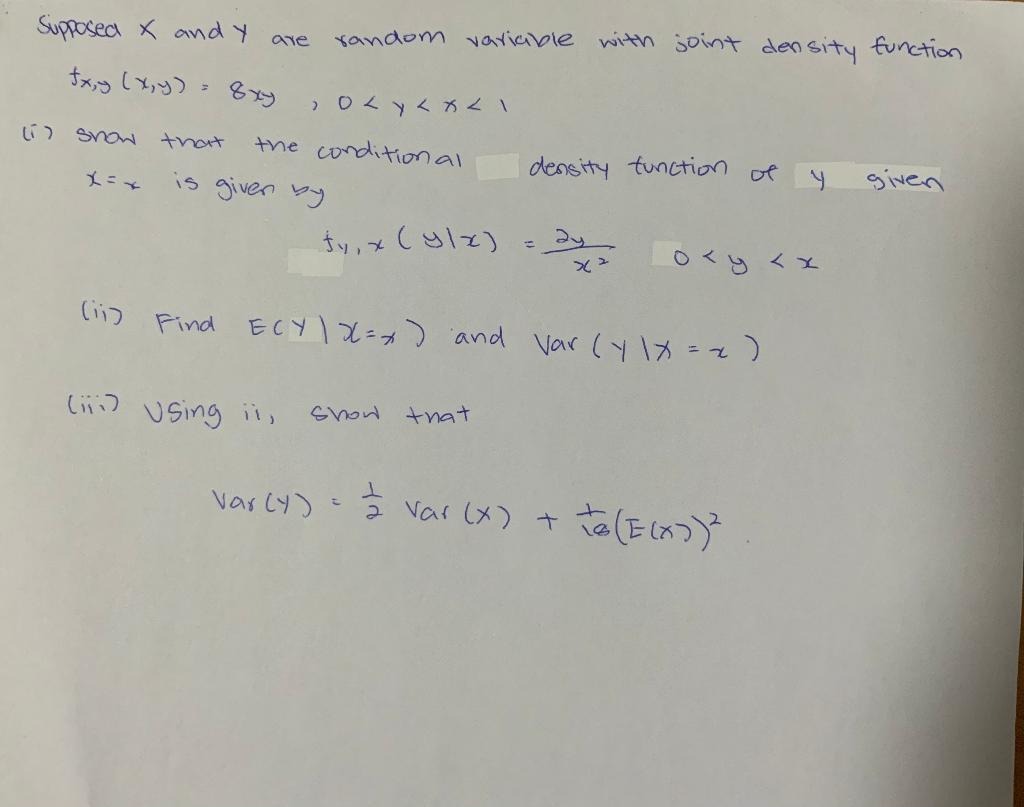 Supposed X and Y are random variable with joint density function
fx,y (x,y) = 8xy , 0 < y < x < 1
(i) show that the conditional density function of y given
x=x is given by
fy,x (y|x) = 2y/x² 0 < y < x
(ii) Find E(Y|X=x) and Var (Y|X=x)
(iii) Using ii, show that
Var(Y) = 1/2 Var(X) + 1/18 (E(X))²